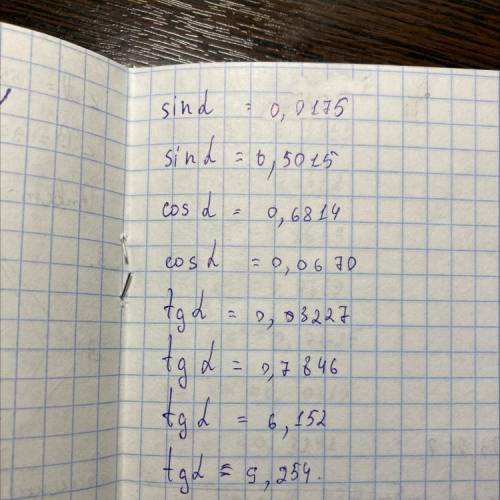 sin α = 0,0175
sin α = 0,5015
cos α = 0,6814
cos α = 0,0670
tg α = 0,03227
tg α = 0,7846
tg α = 6,152
tg α = 9,254.